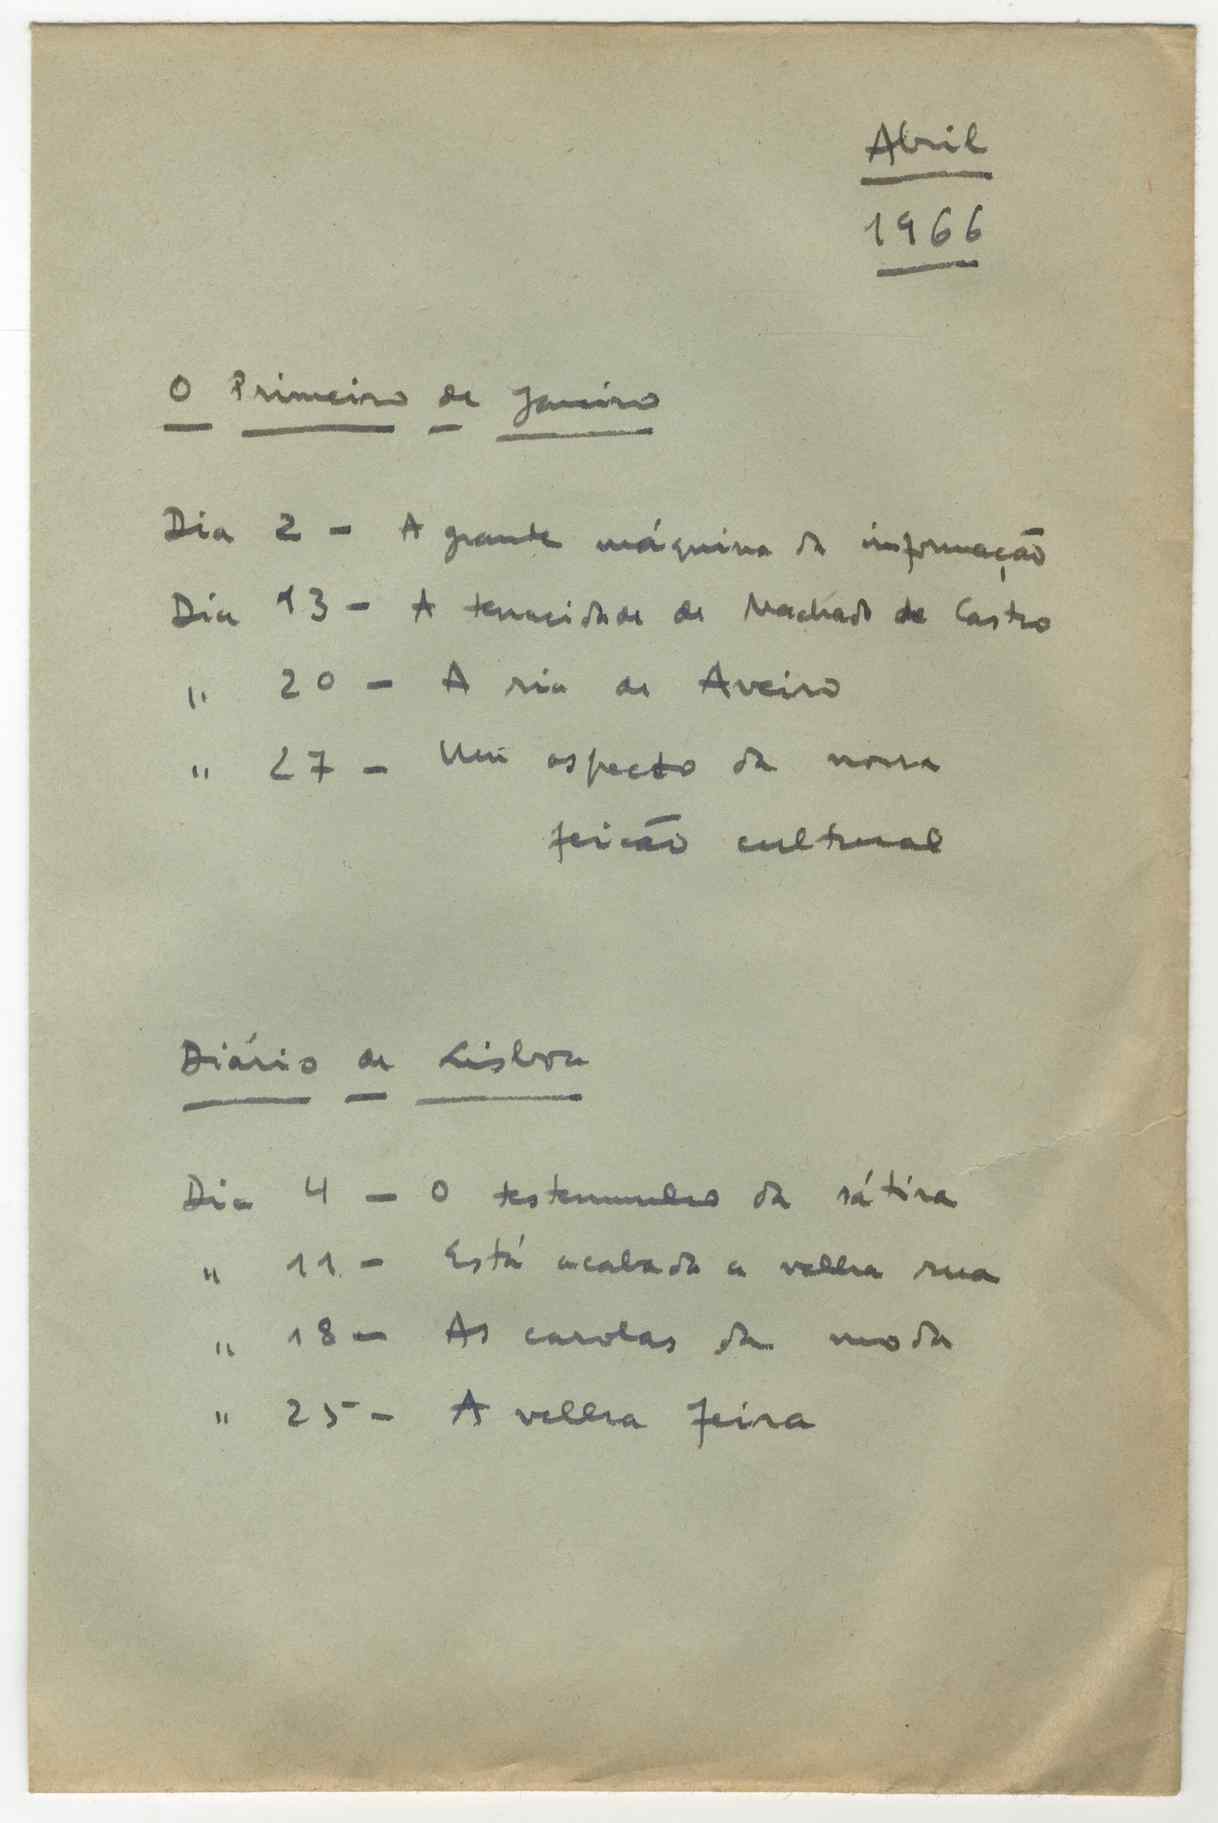 Abril
1966
O Primeiro de Janeiro
Dia 2 - A grande máquina da informação
Dia 13 - A tenacidade de Machado de Castro
" 20 - A ria de Aveiro
" 27 - Um aspecto da nossa
feicão cultural
Diário de Lisboa
Dia 4 - O testemunho da sátira
" 11 - Está acabada a velha rua
" 18 - As carolas da moda
" 25 - A velha feira